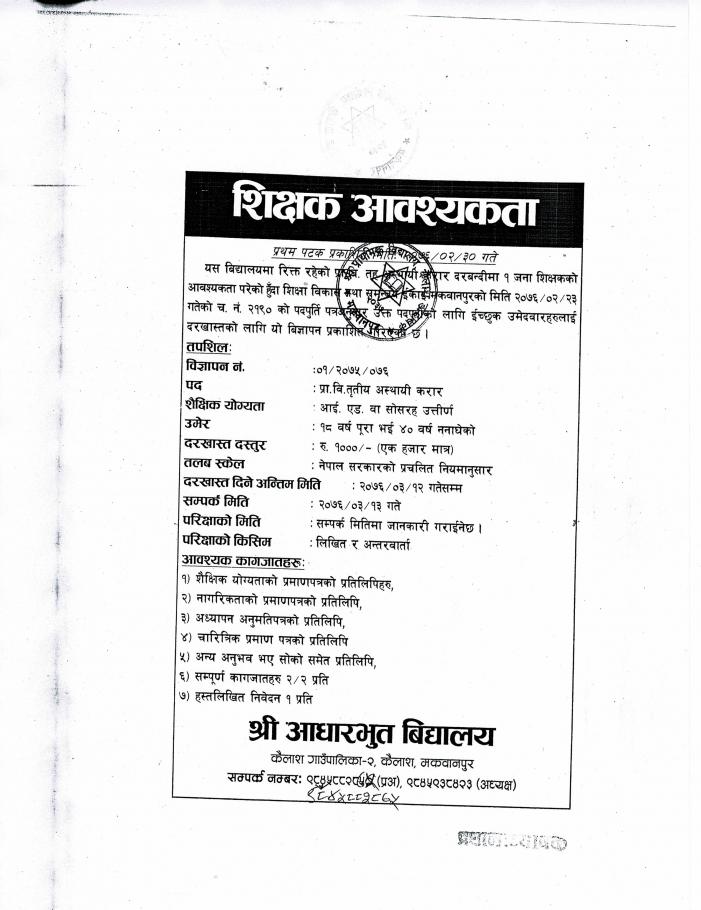 शिक्षक आवश्यकता
प्रथम पटक प्रकाशित मिति: २०७६/०२/३० गते
यस बिद्यालयमा रिक्त रहेको प्रा.वि. तह अस्थायी करार दरबन्दीमा १ जना शिक्षकको
आवश्यकता परेको हुँदा शिक्षा विकास तथा समन्वय ईकाई मकवानपुरको मिति २०७६/०२/२३
गतेको च. नं. २१९० को पदपुर्ति पत्रअनुसार उक्त पदपुर्तिको लागि ईच्छुक उमेदवारहरुलाई
दरखास्तको लागि यो बिज्ञापन प्रकाशित गरिएको छ।
तपशिल:
विज्ञापन नं. :०१/२०७५/०७६
पद : प्रा.वि.तृतीय अस्थायी करार
शैक्षिक योग्यता : आई. एड. वा सोसरह उत्तीर्ण
उमेर : १८ वर्ष पूरा भई ४० वर्ष ननाघेको
दरखास्त दस्तुर : रु. १०००/- (एक हजार मात्र)
तलब स्केल : नेपाल सरकारको प्रचलित नियमानुसार
दरखास्त दिने अन्तिम मिति : २०७६/०३/१२ गतेसम्म
सम्पर्क मिति : २०७६/०३/१३ गते
परिक्षाको मिति : सम्पर्क मितिमा जानकारी गराईनेछ।
परिक्षाको किसिम : लिखित र अन्तरवार्ता
आवश्यक कागजातहरु:
१) शैक्षिक योग्यताको प्रमाणपत्रको प्रतिलिपिहरु,
२) नागरिकताको प्रमाणपत्रको प्रतिलिपि,
३) अध्यापन अनुमतिपत्रको प्रतिलिपि,
४) चारित्रिक प्रमाण पत्रको प्रतिलिपि
५) अन्य अनुभव भए सोको समेत प्रतिलिपि,
६) सम्पूर्ण कागजातहरु २/२ प्रति
७) हस्तलिखित निवेदन १ प्रति
श्री आधारभुत बिद्यालय
कैलाश गाउँपालिका-२, कैलाश, मकवानपुर
सम्पर्क नम्बर: (प्रअ), ९८४५१३८४२३ (अध्यक्ष)